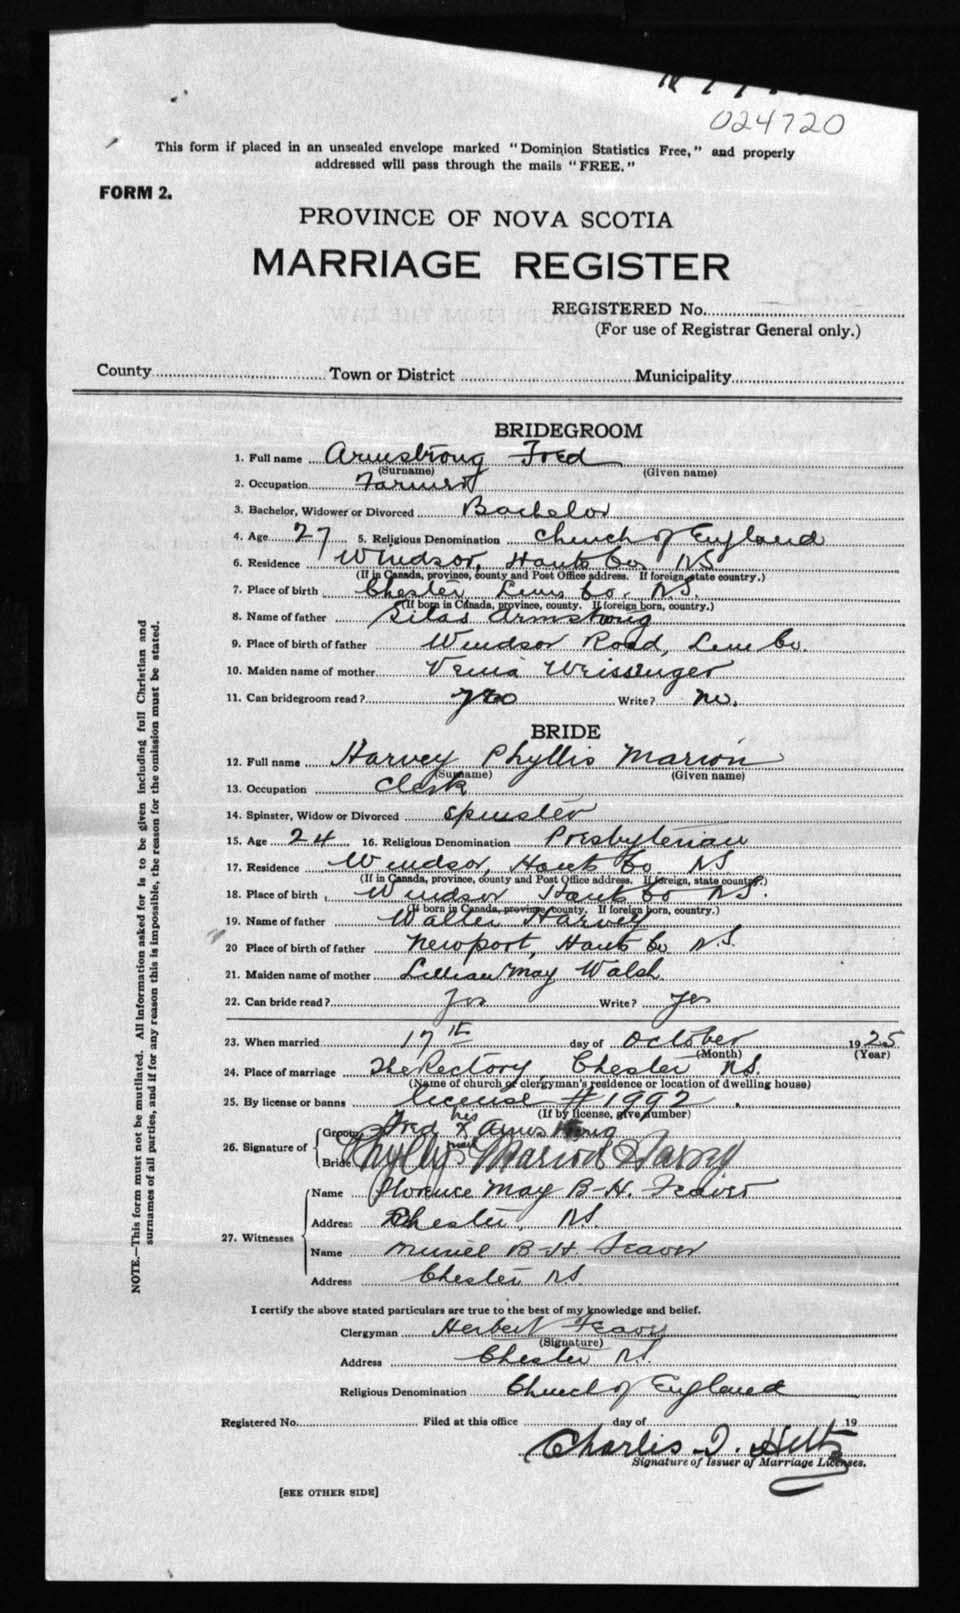 024720
This form if placed in an unsealed envelope marked "Dominion Statistics Free," and properly
addressed will pass through the mails "FREE."
FORM 2.
PROVINCE OF NOVA SCOTIA
MARRIAGE REGISTER
REGISTERED No.
(For use of Registrar General only.)
County Town or District Municipality
BRIDEGROOM
1. Full name Armstrong Fred
(Surname) (Given name)
2. Occupation Farmer
3. Bachelor, Widower or Divorced Bachelor
4. Age 27 5. Religious Denomination Church of England
6. Residence Windsor, Hants Co NS
(If in Canada, province, county and Post Office address. If foreign, state country.)
7. Place of birth Chester Lun. Co. N.S.
(If born in Canada, province, county. If foreign born, country.)
8. Name of father Silas Armstrong
9. Place of birth of father Windsor Road, Lun Co.
10. Maiden name of mother
11. Can bridegroom read? Write? no.
BRIDE
12. Full name Harvey Phyllis Marion
(Surname) (Given name)
13. Occupation Clerk
14. Spinster, Widow or Divorced Spinster
15. Age 24 16. Religious Denomination Presbyterian
17. Residence Windsor, Hants Co NS
(If in Canada, province, county and Post Office address. If foreign, state country.)
18. Place of birth Windsor Hants Co NS.
(If born in Canada, province, county. If foreign born, country.)
19. Name of father Walter Harvey
20 Place of birth of father Newport, Hants Co N.S.
21. Maiden name of mother Lillian May Walsh
22. Can bride read? Yes Write? Yes
23. When married 17th day of October 1925
(Month) (Year)
24. Place of marriage The Rectory, Chester NS.
(Name of church or clergyman's residence or location of dwelling house)
25. By license or banns license #1992
(If by license, give number)
26. Signature of Groom Fred his X mark Armstrong
Bride Phyllys Marion Harvey
27. Witnesses
Name Florence May B-H. Feaver
Address Chester, NS.
Name Muriel B-H. Feaver
Address Chester NS
I certify the above stated particulars are true to the best of my knowledge and belief.
Clergyman Herbert Feaver
(Signature)
Address Chester NS.
Religious Denomination Church of England
Registered No. Filed at this office day of 19
Charles I. Hiltz
Signature of Issuer of Marriage Licenses.
[SEE OTHER SIDE]
NOTE.—This form must not be mutilated. All information asked for is to be given including full Christian and
surnames of all parties, and if for any reason this is impossible, the reason for the omission must be stated.